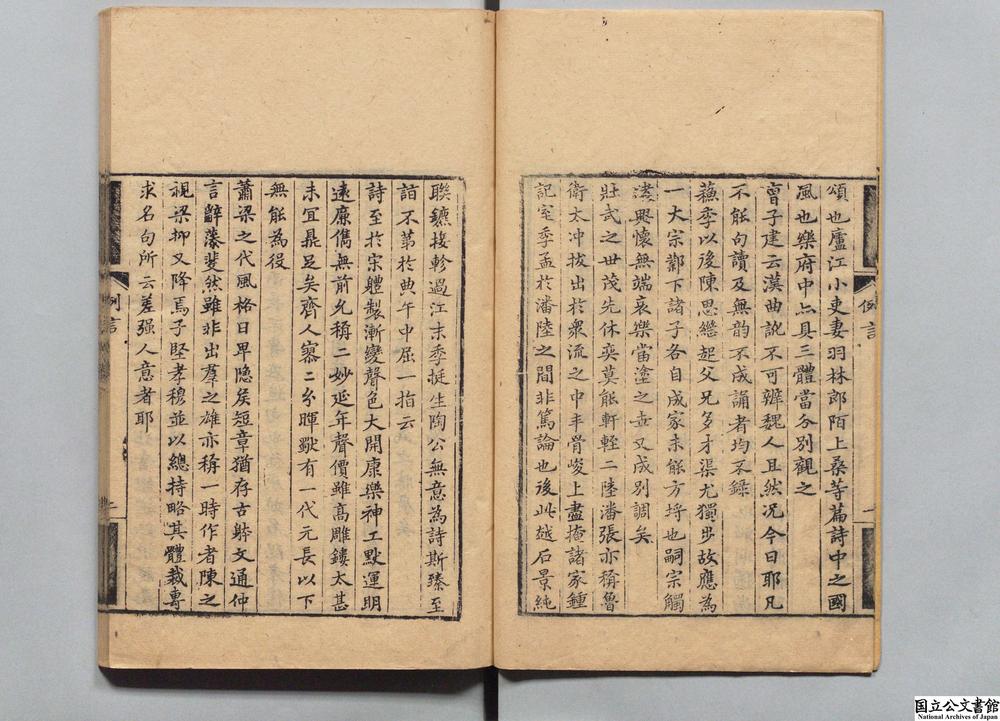 頌也廬江小吏妻羽林郎陌上桑等篇詩中之國
風也樂府中亦具三體當分別觀之
曹子建云漢曲訛不可辨魏人且然况今日耶凡
不能句讀及無韵不成誦者均不錄
蘇李以後陳思繼起父兄多才渠尤獨步故應為
一大宗鄴下諸子各自成家未能方埒也嗣宗觸
緒興懷無端哀樂當塗之世又成別調矣
壯武之世茂先休奕莫能軒輊二陸潘張亦稱魯
衛太冲拔出於衆流之中丰骨峻上盡掩諸家鍾
記室季孟於潘陸之間非篤論也後此越石景純
聯鑣接軫過江末季挺生陶公無意為詩斯臻至
詣不第於典午中屈一指云
詩至於宋軆製漸變聲色大開康樂神工默運明
遠廉儁無前允稱二妙延年聲價雖高雕鏤太甚
未宜鼎足矣齊人寥寥玄暉獨有一代元長以下
無能為役
蕭梁之代風格日卑隱矦短章猶存古躰文通仲
言辭藻斐然雖非出羣之雄亦稱一時作者陳之
視梁抑又降焉子堅孝穆並以總持略其體裁專
求名句所云差强人意者耶
例言
一
例言
二
国立公文書館
National Archives of Japan